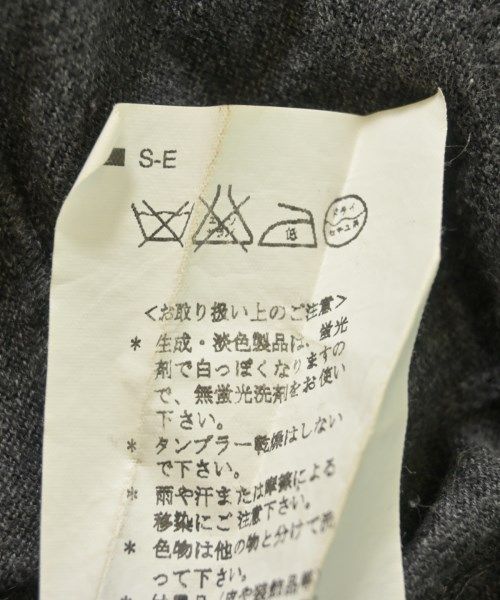 S-E
低
ドライ
セキユ系
<お取り扱い上のご注意>
* 生成・淡色製品は、蛍光
剤で白っぽくなりますの
で、無蛍光洗剤をお使い
下さい。
* タンブラー乾燥はしない
で下さい。
* 雨や汗または摩擦による
移染にご注意下さい。
* 色物は他の物と分けて洗
って下さい。
* 付属品(皮や装飾品等